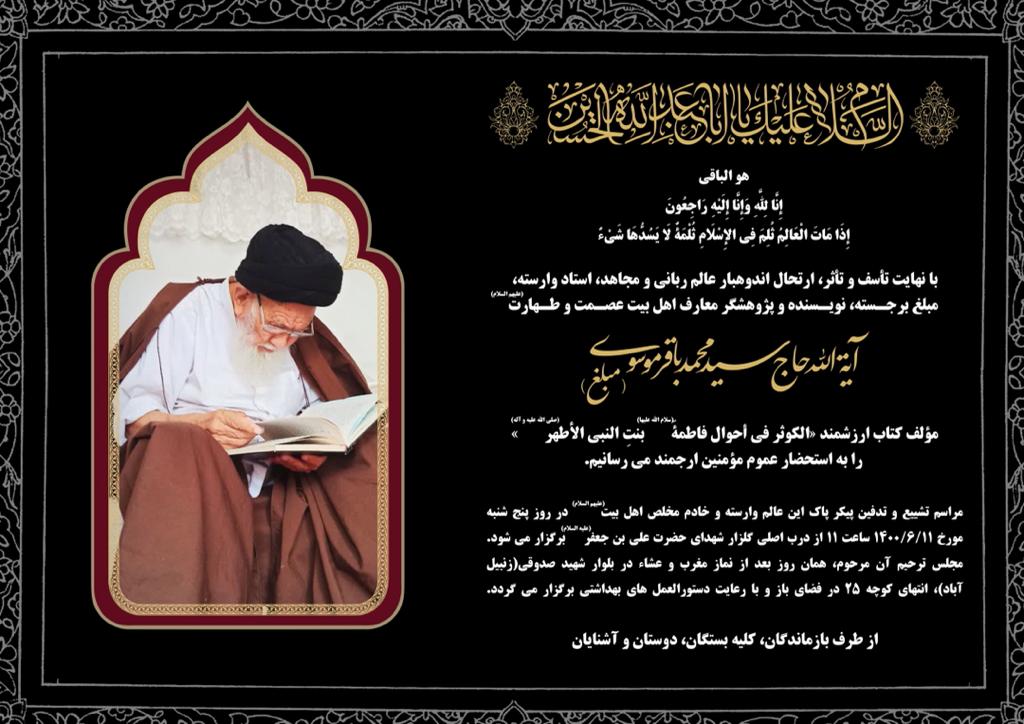 السلام علیک یا اباعبدالله الحسین
هو الباقی
إِنَّا لِلَّهِ وَإِنَّا إِلَیْهِ رَاجِعُونَ
إِذَا مَاتَ الْعَالِمُ ثُلِمَ فِی الإِسْلَامِ ثُلْمَةٌ لَا یَسُدُّهَا شَیْءٌ
با نهایت تأسف و تأثر، ارتحال اندوهبار عالم ربانی و مجاهد، استاد وارسته،
مبلغ برجسته، نویسنده و پژوهشگر معارف اهل بیت عصمت و طهارت (علیهم السلام)
آیة الله حاج سید محمد باقر موسوی (مبلغ)
مؤلف کتاب ارزشمند «الکوثر فی أحوال فاطمة (سلام الله علیها) بنتِ النبی الأطهر (صلی الله علیه و آله)»
را به استحضار عموم مؤمنین ارجمند می رسانیم.
مراسم تشییع و تدفین پیکر پاک این عالم وارسته و خادم مخلص اهل بیت (علیهم السلام) در روز پنج شنبه
مورخ ۱۴۰۰/۶/۱۱ ساعت ۱۱ از درب اصلی گلزار شهدای حضرت علی بن جعفر (علیه السلام) برگزار می شود.
مجلس ترحیم آن مرحوم، همان روز بعد از نماز مغرب و عشاء در بلوار شهید صدوقی(زنبیل
آباد)، انتهای کوچه ۲۵ در فضای باز و با رعایت دستورالعمل های بهداشتی برگزار می گردد.
از طرف بازماندگان، کلیه بستگان، دوستان و آشنایان